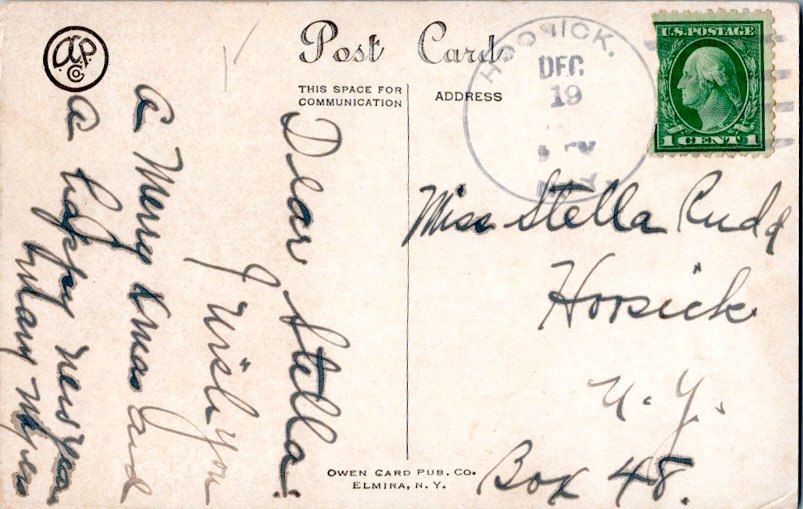 O.P.
Co.
Post Card
THIS SPACE FOR
COMMUNICATION
ADDRESS
HOOSICK.
DEC
19
U.S. POSTAGE
1 CENT 1
Dear Stella.
I wish you
a Merry Xmas and
a happy new year
Miss Stella Rudd
Hoosick
N. Y.
Box 48.
OWEN CARD PUB. CO.
ELMIRA, N. Y.